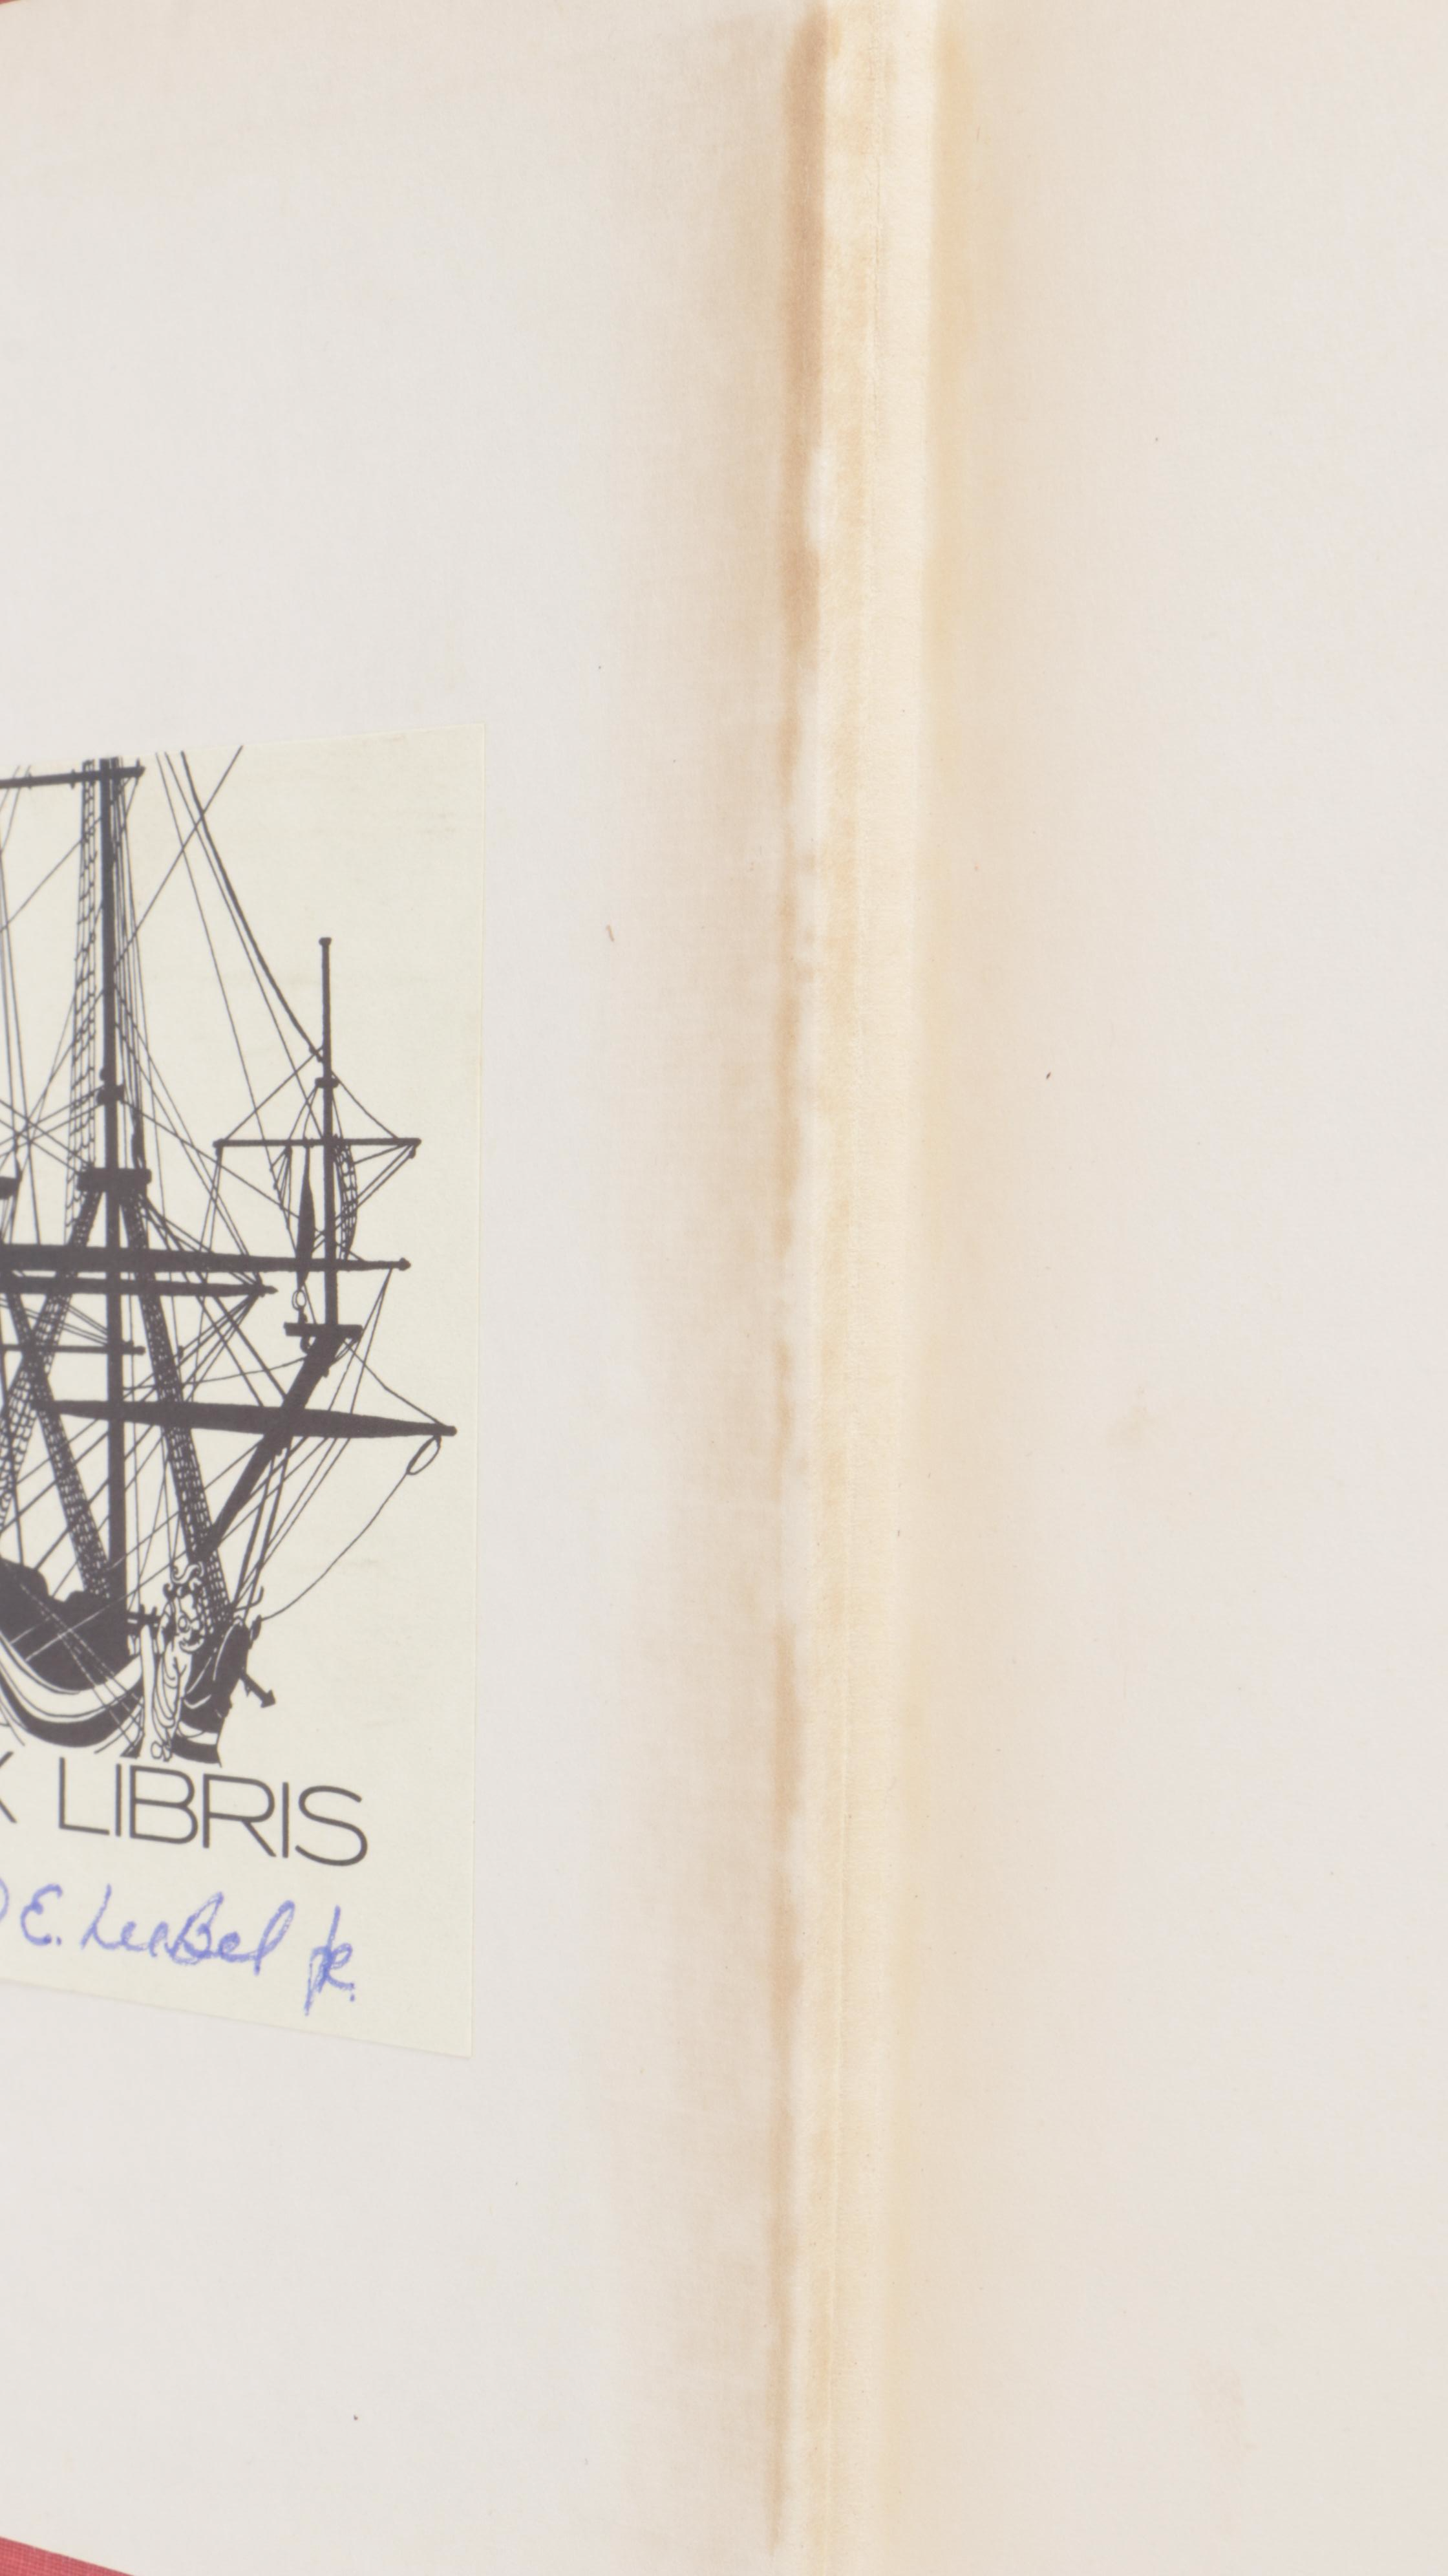 X LIBRIS
E. LeeBel jr.